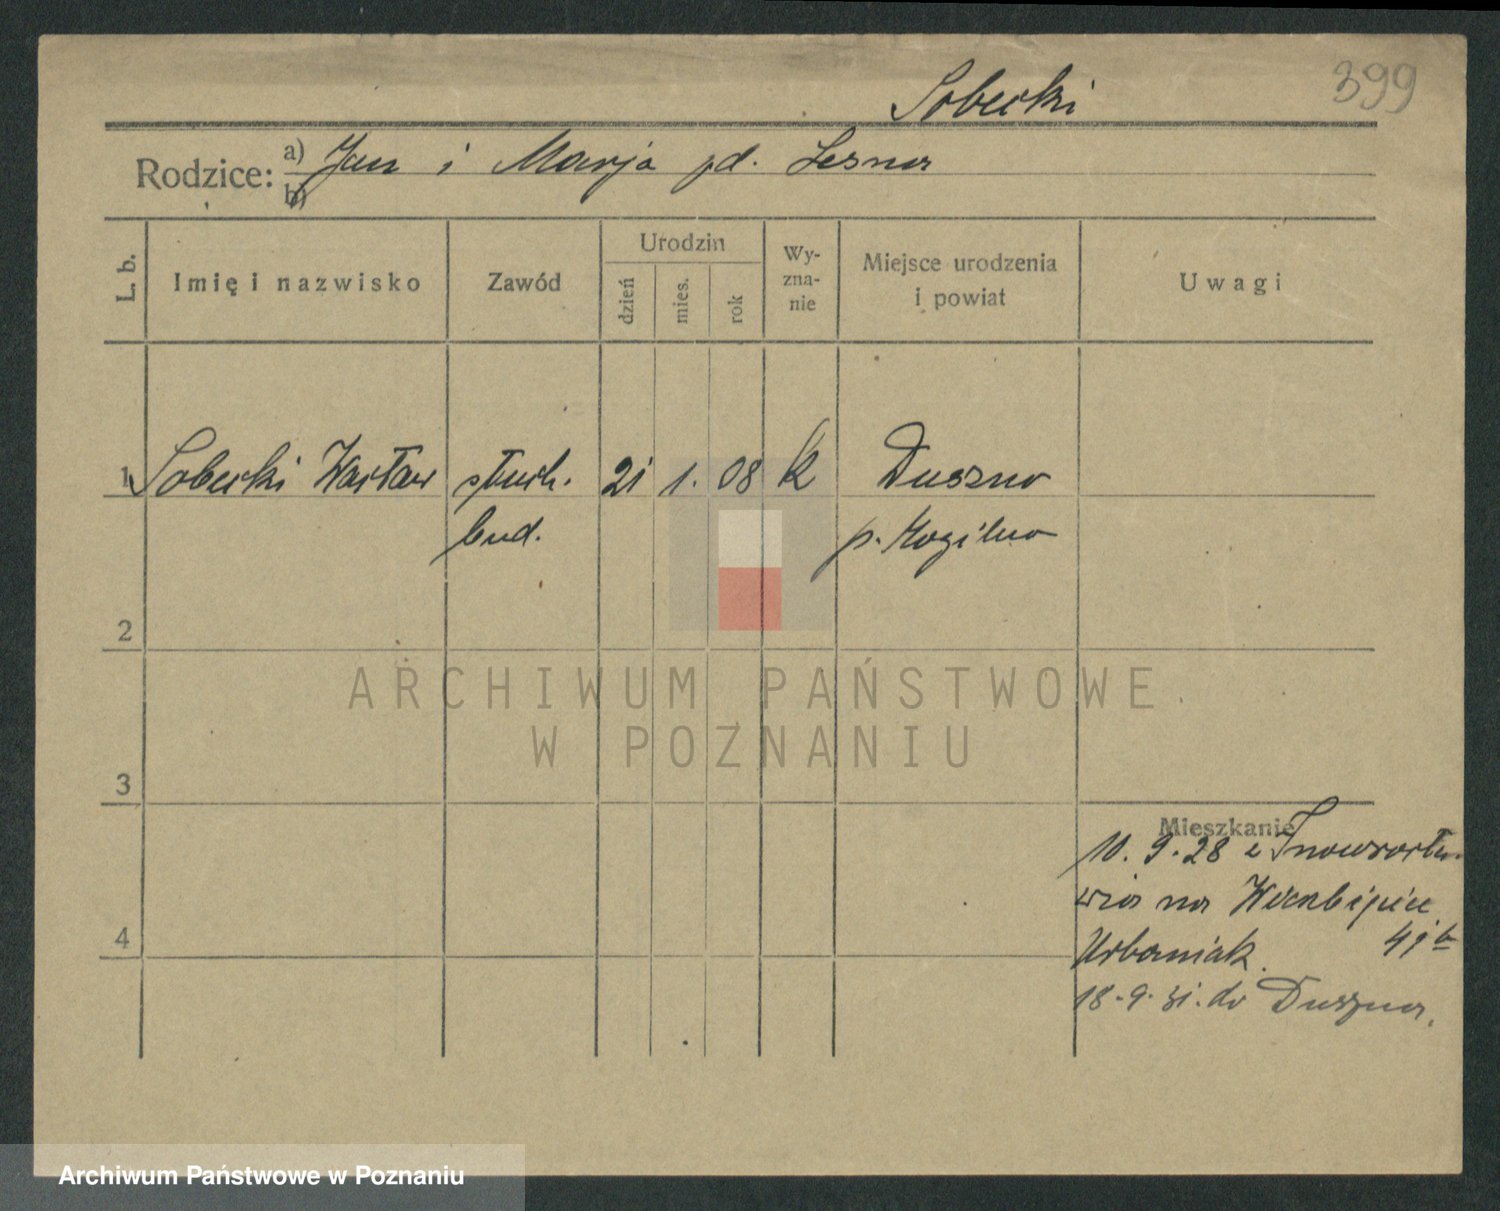 399
Sobecki
Rodzice: a) Jan i Marja pd. Lesna
b)
L. b.
Imię i nazwisko
Zawód
Urodzin
dzień
mies.
rok
Wy-
zna-
nie
Miejsce urodzenia
i powiat
Uwagi
1 Sobecki Wacław słuch. 21 1. 08 k Duszno
bud. p. Mogilno
2
ARCHIWUM PAŃSTWOWE
W POZNANIU
3
Mieszkanie
10. 9. 28 z Inowrocła-
wia na
4
Urbaniak.
18. 9. 31. do Duszna.
Archiwum Państwowe w Poznaniu